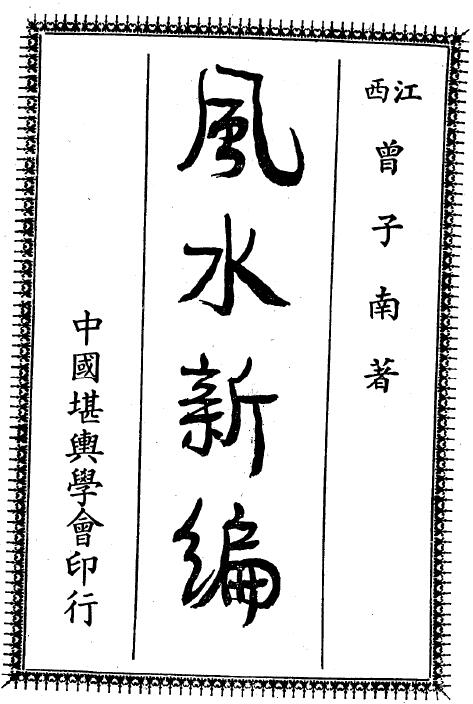 江西 曾子南著
風水新編
中國堪輿學會印行